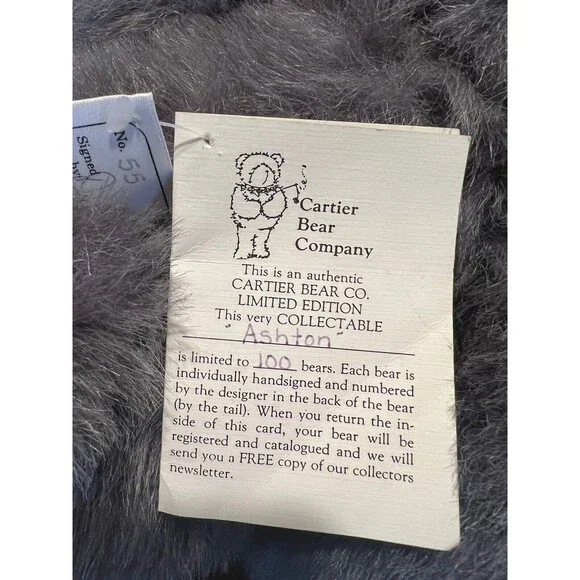 No. 55
Signed
by
Cartier
Bear
Company
This is an authentic
CARTIER BEAR CO.
LIMITED EDITION
This very COLLECTABLE
"Ashton"
is limited to 100 bears. Each bear is
individually handsigned and numbered
by the designer in the back of the bear
(by the tail). When you return the in-
side of this card, your bear will be
registered and catalogued and we will
send you a FREE copy of our collectors
newsletter.